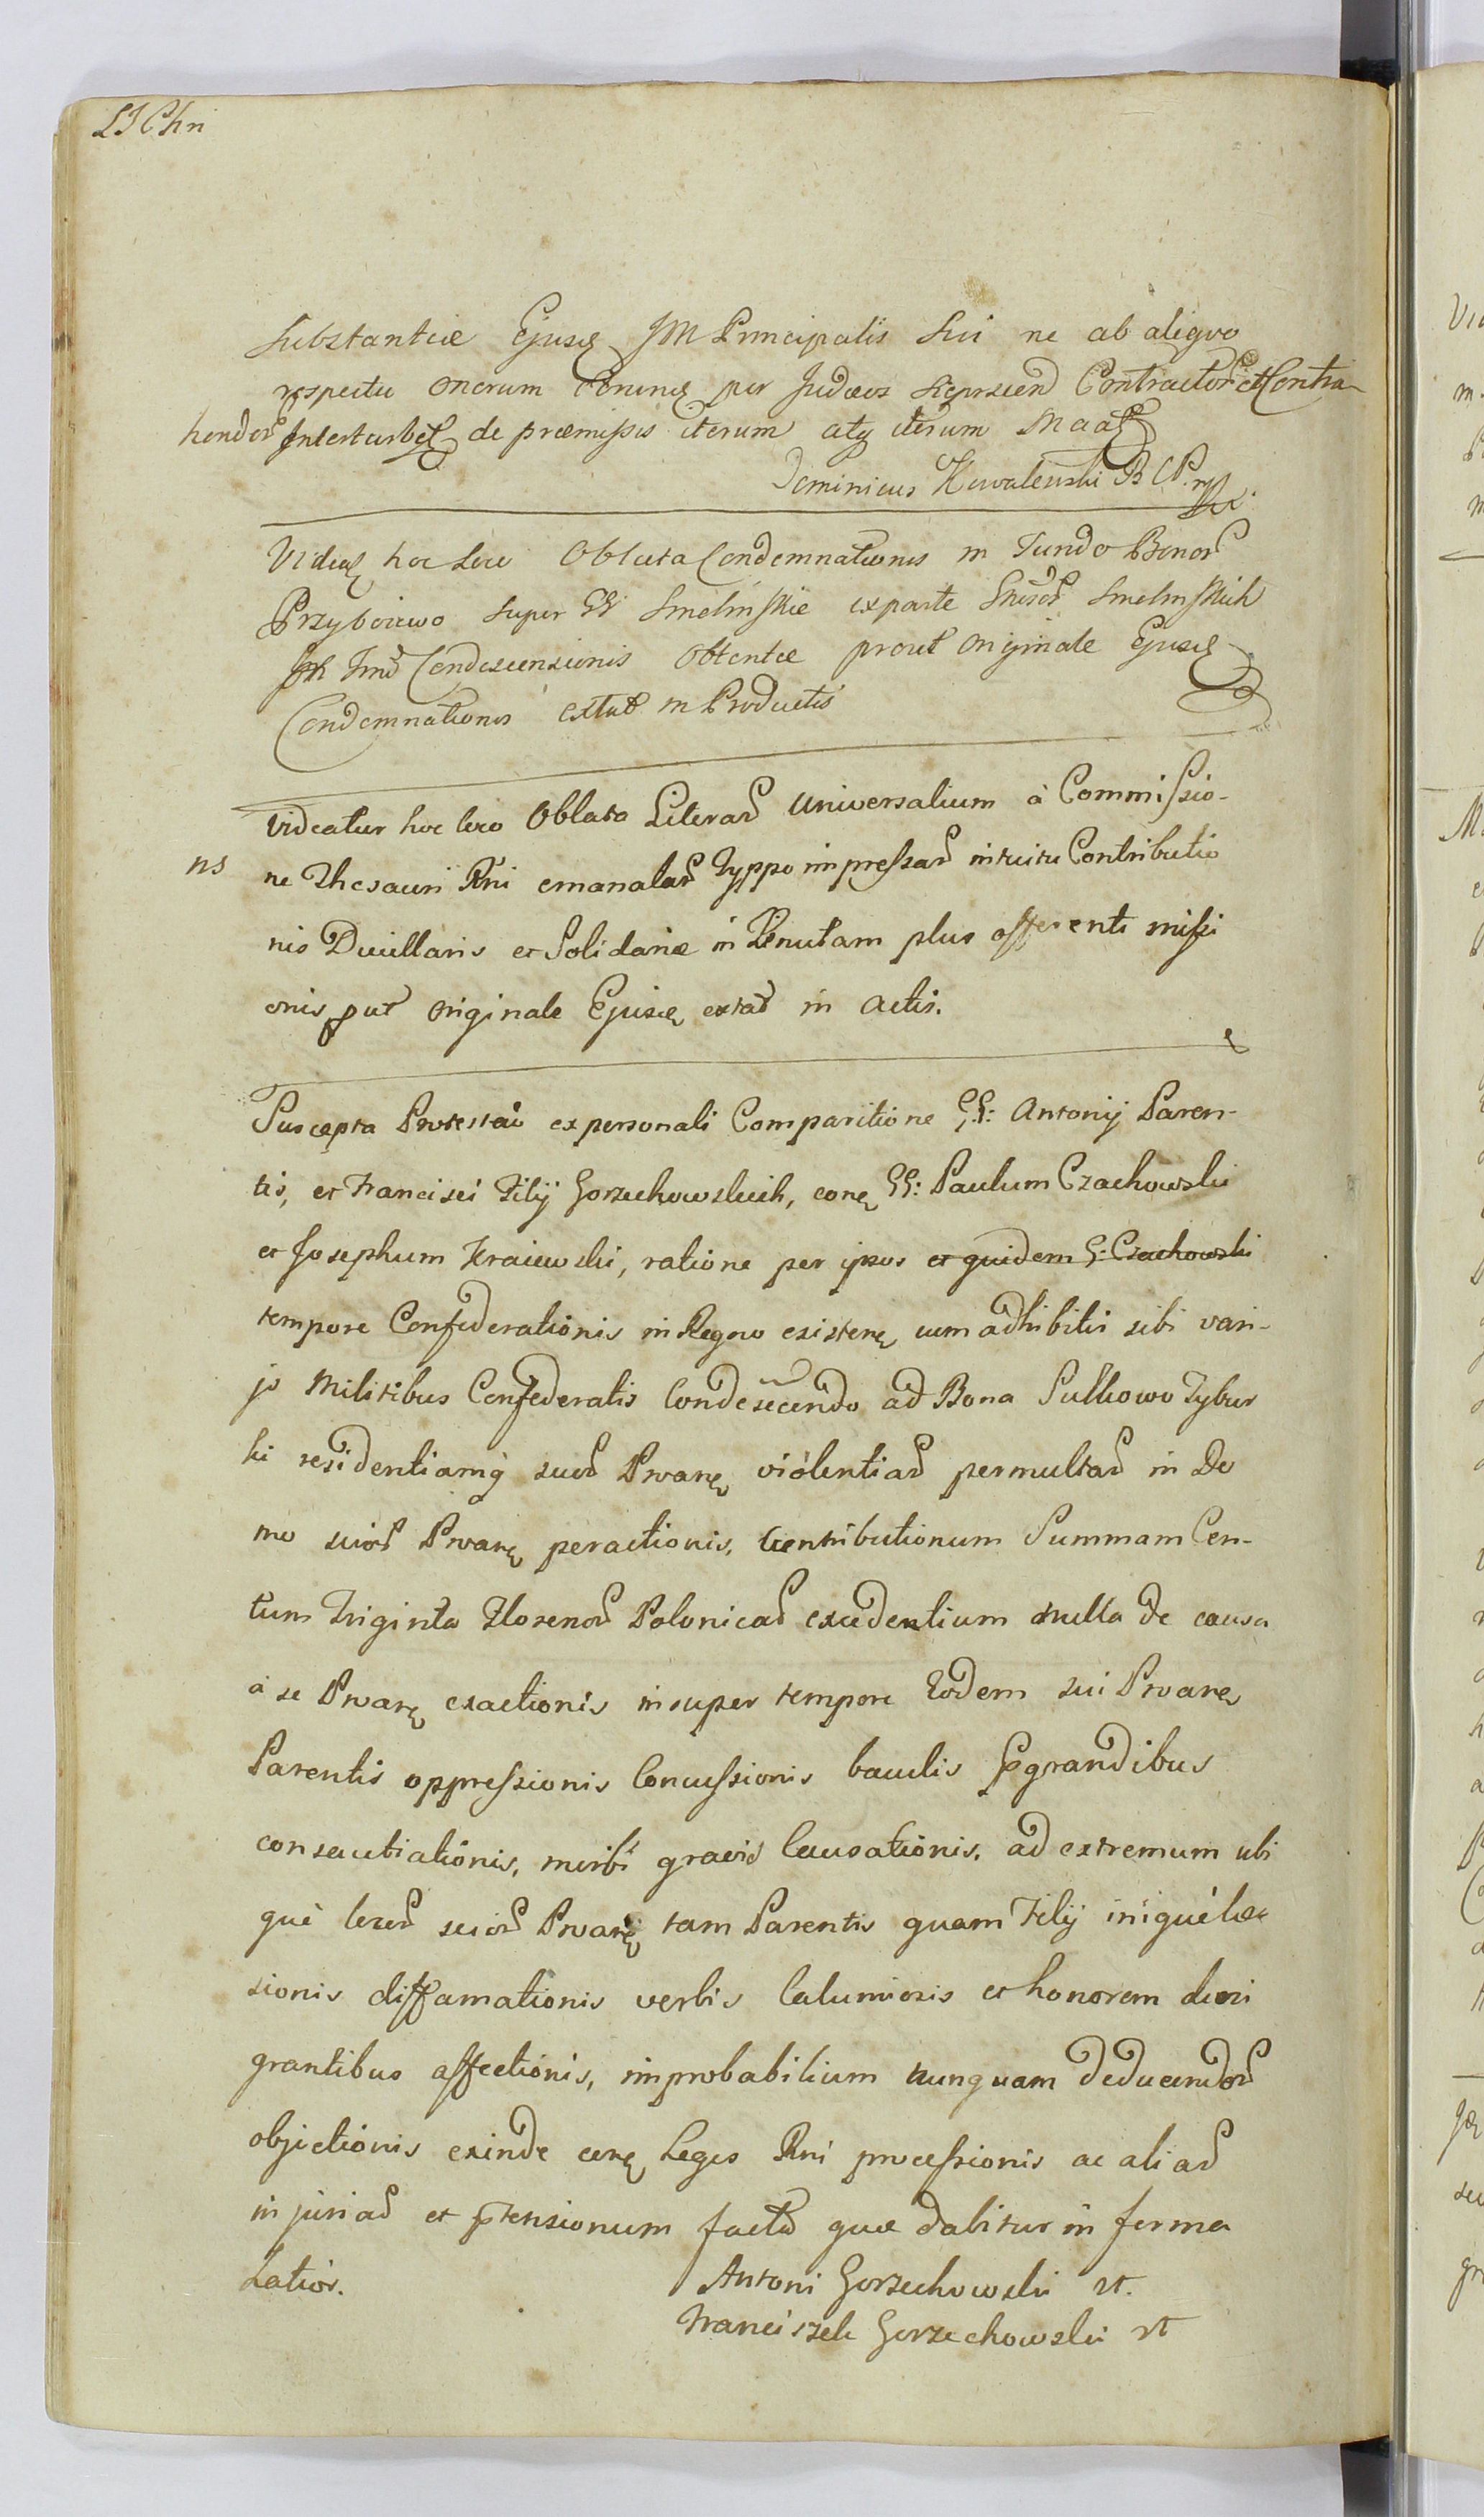 LJChri
Substantiæ Ejusd JM Principalis sui ne ab aliquo
respectu onerum per Judæos Contractor et Contra-
hendor Inturbet de præmissis iterum atq iterum Maat
Dominicus Kowalewski B C P. mp
Videat hoc loco Oblata Condemnationis in Fundo Bonor
Przyborowo super GG Smelinskie ex parte Smelinskich
Condescensionis Obtentæ prout Originale Ejusd
Condemnationis extat in Productis
Videatur hoc loco Oblata Literar Universalium à Commissio-
ns
ne Thesauri Rni emanatar Typpo impressar intuitu Contributio
nis Ducillaris et Solidariæ in Tenutam plus offerenti missi
onis put Originale Ejusd extat in actis.
Suscepta Protestao ex personali Comparitione GG: Antonij Paren-
tis, et Francisci Filij Gorzechowskich, cone GG: Paulum Czachowski
et Josephum Kraiewski, ratione per ipsos et quidem G: Czachowski
tempore Confederationis in Regno existene cum adhibitis sibi vari-
js Militibus Confederatis Condescendo ad Bona Sulkowo Tybur
ki residentiamq suor Prvane violentiar permultar in Do
mo suior Prvane peractionis, Contributionum Summam Cen-
tum Triginta Florenor Polonicar excedentium nulla de causa
a se Prvane exactionis insuper tempore Eodem sui Prvane
Parentis oppressionis Concussionis baculis prgrandibus
consautiationis, morbi gravis Causationis, ad extremum ubi
què locor suior Prvane tam Parentis quam Filij iniquè læ
sionis diffamationis verbis Calumiosis et honorem deni
grantibus affectionis, improbabilium nunquam deducendor
objectionis exinde cone Leges Rni processionis ac aliar
injuriar et ptensionum facta quæ dabitur in forma
Latior.
Antoni Gorzechowski rt.
Franciszek Gorzechowski rt